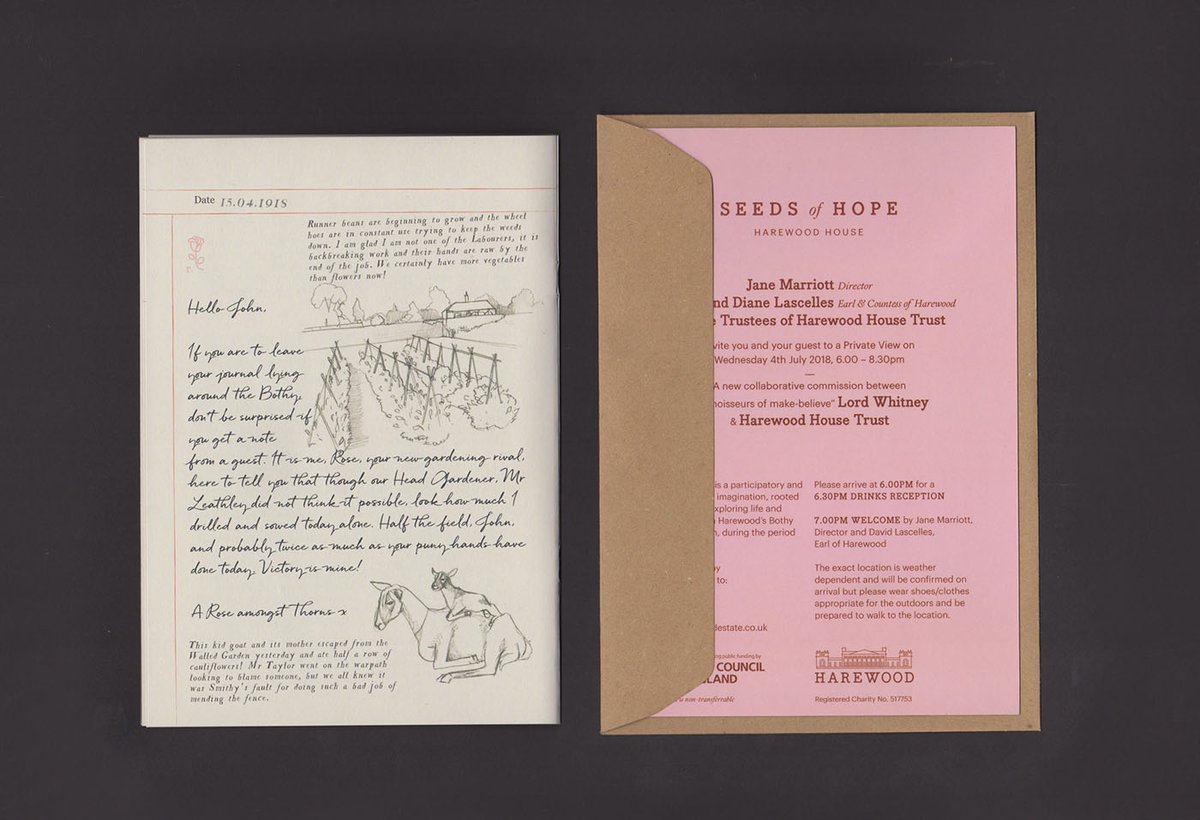 Date 15.04.1918
Runner beans are beginning to grow and the wheel
hoes are in constant use trying to keep the weeds
down. I am glad I am not one of the Labourers, it is
backbreaking work and their hands are raw by the
end of the job. We certainly have more vegetables
than flowers now!
Hello John,
If you are to leave
your journal lying
around the Bothy,
don't be surprised if
you get a note
from a guest. It is me, Rose, your new gardening rival,
here to tell you that though our Head Gardener, Mr
Leathley did not think it possible, look how much I
drilled and sowed today alone. Half the field, John,
and probably twice as much as your puny hands have
done today. Victory is mine!
A Rose amongst Thorns x
This kid goat and its mother escaped from the
Walled Garden yesterday and ate half a row of
cauliflowers! Mr Taylor went on the warpath
looking to blame someone, but we all knew it
was Smithy's fault for doing such a bad job of
mending the fence.
SEEDS of HOPE
HAREWOOD HOUSE
Jane Marriott Director
nd Diane Lascelles Earl & Countess of Harewood
e Trustees of Harewood House Trust
vite you and your guest to a Private View on
Wednesday 4th July 2018, 6.00 – 8.30pm
—
A new collaborative commission between
noisseurs of make-believe" Lord Whitney
& Harewood House Trust
is a participatory and
imagination, rooted
xploring life and
Harewood's Bothy
, during the period
by
to:
destate.co.uk
ng public funding by
COUNCIL
LAND
is non-transferrable
Please arrive at 6.00PM for a
6.30PM DRINKS RECEPTION
7.00PM WELCOME by Jane Marriott,
Director and David Lascelles,
Earl of Harewood
The exact location is weather
dependent and will be confirmed on
arrival but please wear shoes/clothes
appropriate for the outdoors and be
prepared to walk to the location.
HAREWOOD
Registered Charity No. 517753